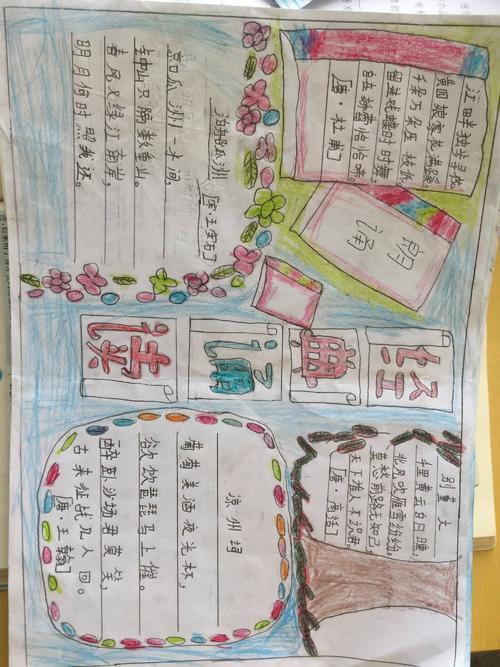 经典诵读
江畔独步寻花
黄四娘家花满蹊,
千朵万朵压枝低
留连戏蝶时时舞,
自在娇莺恰恰啼。
[唐·杜甫]
朗诵
泊船瓜洲
[宋·王安石]
京口瓜洲一水间,
钟山只隔数重山。
春风又绿江南岸,
明月何时照我还。
别董大
千里黄云白日曛,
北风吹雁雪纷纷
莫愁前路无知己,
天下谁人不识君。
[唐·高适]
凉州词
葡萄美酒夜光杯,
欲饮琵琶马上催。
醉卧沙场君莫笑,
古来征战几人回。
[唐·王翰]